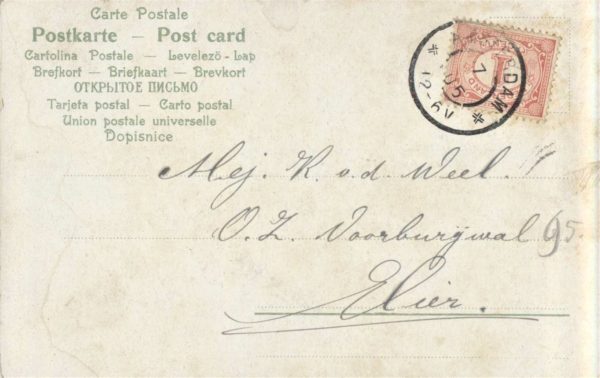 Carte Postale
Postkarte – Post card
Cartolina Postale – Levelezö-Lap
Brefkort – Briefkaart – Brevkort
ОТКРЫТОЕ ПИСЬМО
Tarjeta postal – Carto postal
Union postale universelle
Dopisnice
DAM
7
05
12-6V
1
Mej. K. v.d. Weel.
O.Z. Voorburgwal 95.
Hier.